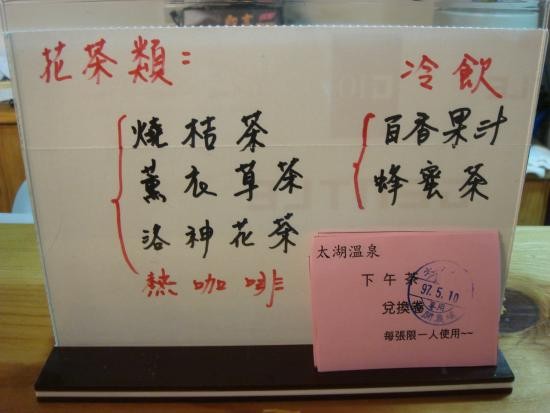 花茶類：
燒桔茶
薰衣草茶
洛神花茶
熱咖啡
冷飲
百香果汁
蜂蜜茶
太湖溫泉
下午茶
兌換卷
每張限一人使用~~
97.5.10